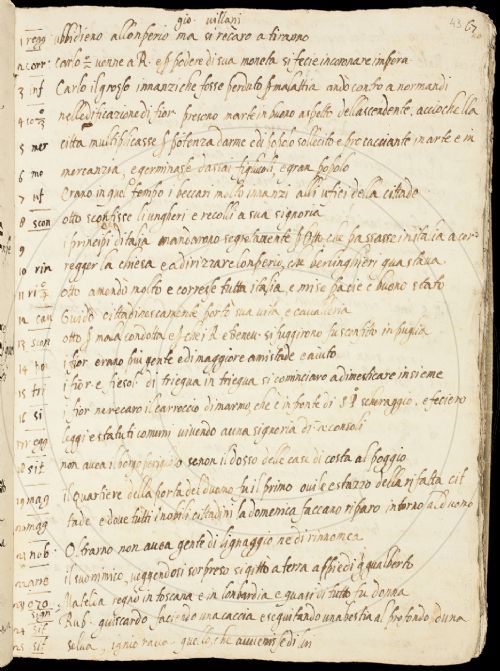 gio· villani
43 67
1 regg ubbidieno all onperio ma si recaro a tiranno
2 corr: carlo venne a R· e p podere di sua moneta si fecie inconare imp̃era
3 inf Carlo il grosso innanzi che fosse perduto p malattia ando contro a normandi
4 nella dificazione di fior preseno marte in buono aspetto dell ascendente, accioche lla
5 mer citta multiplicasse p potenza d arme e di popolo sollecito e procacciante in arte e in
6 mo mercanzia, e germinasse d assai figliuoli, e gran popolo
7 inf Erano in quel tempo i beccari molto innanzi alli ufici della cittade
8 scon otto sconfisse li ungheri e recolli a sua signoria
9 i principi d italia mandarono segretamente p otto che passasse in italia a cor-
10 rin regger la chiesa e a dirizzare l onperio, che berlinghieri guastava
11 otto amendò molto e corresse tutta italia, e mise pacie e buono stato
12 cav Guido cittadinescamente portò sua vita e cavalleria
13 scon otto p mala condotta e p che i R e benev· si fuggirono fu sconfitto in puglia
14 po i fior erano piu gente e di maggiore amistade e aiuto
15 tri i fior e fiesol· di triegua in triegua si cominciaro a dimesticare insieme
16 si i fior ne recaro il carroccio di marmo, che è in fonte di S P scheraggio· e feciero
17 regg leggi e statuti comuni vivendo a una signoria di 2 consoli
18 sit non avea il borgo pidiglioso se non il dosso delle case di costa al poggio
19 mag il quartiere della porta del duomo fu il primo ovile e stazzo della rifatta cit
20 magg tade e dove tutti i nobili cittadini la domenica faceano riparo intorno al duomo
21 nob· Oltrarno non avea gente di lignaggio ne di rinnomea
22 arre il suo nimico, veggendosi sorpreso si gittò a terra a ppiedi a gualberto
23 Matelda regno in toscana e in lombardia e quasi di tutto fu donna
24 sit Rub· guiscardo faciendo una caccia e seguitando una bestia al profondo d una
25 sit selva, ignio rava quello, che avvenisse di lui